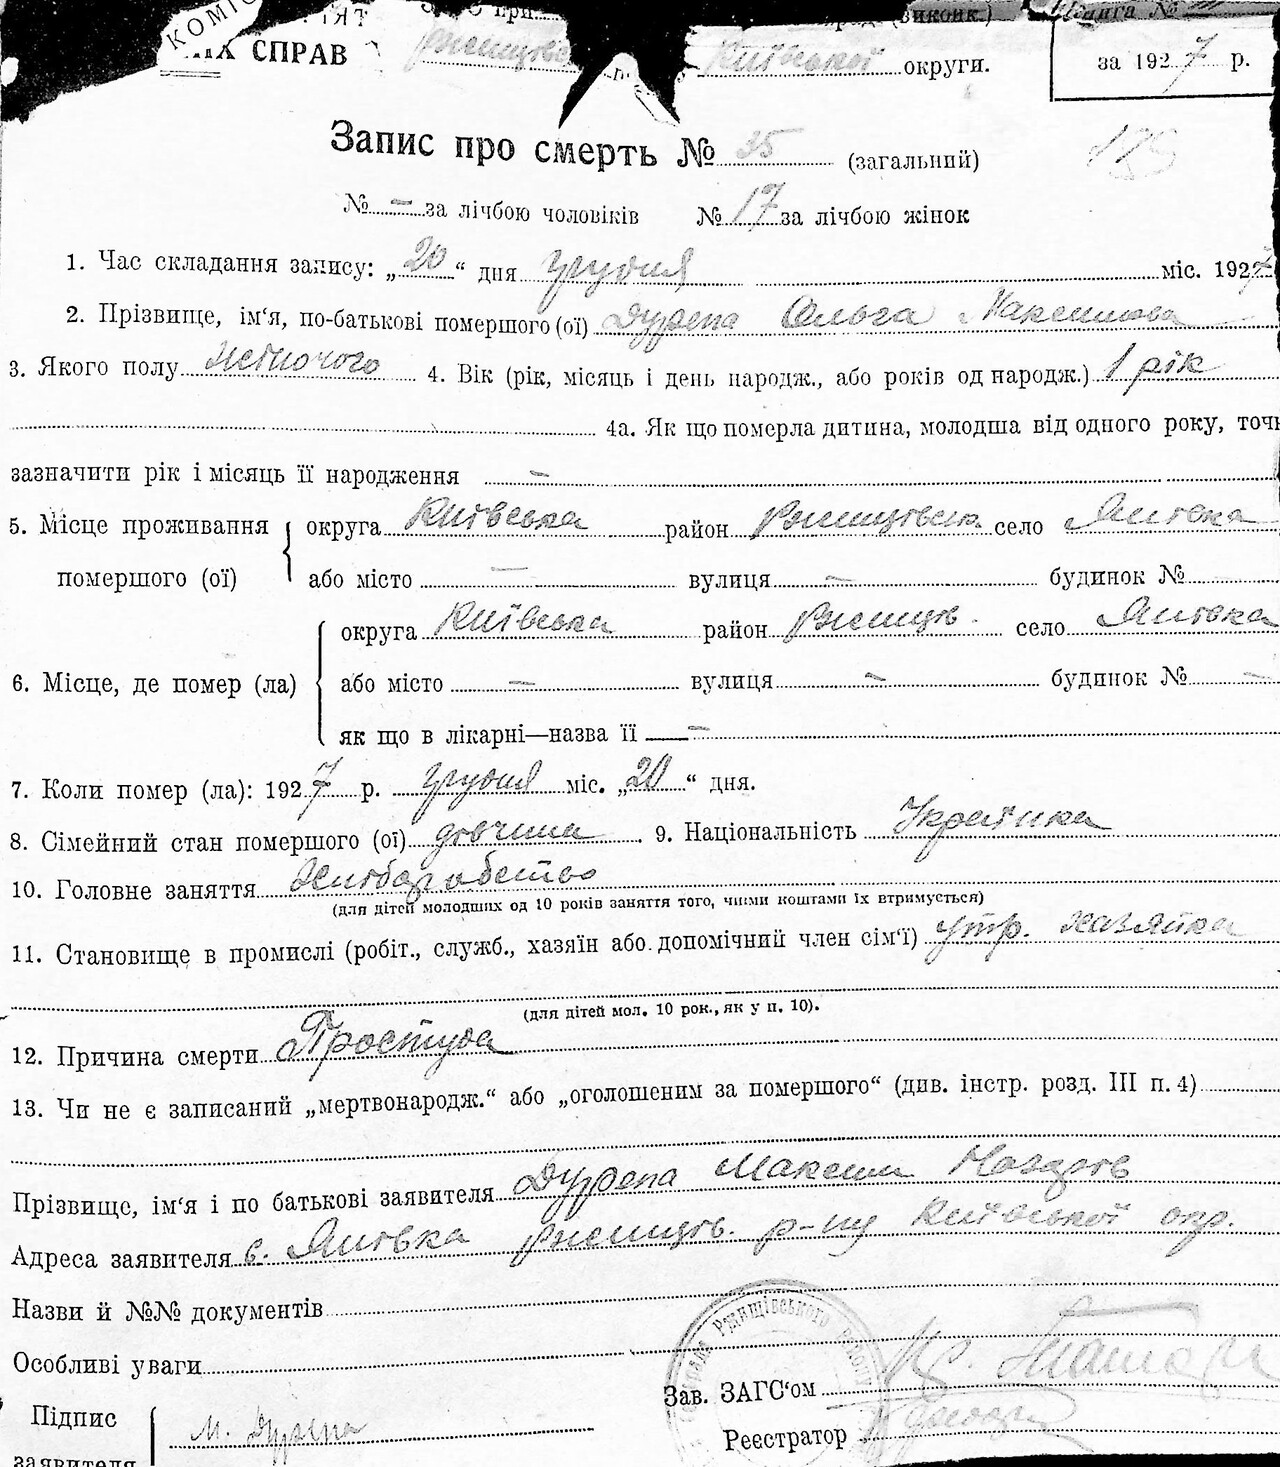 КОМІС
ИХ СПРАВ
Ржищівс
Київської округи.
Книга №
за 1927 р.
Запис про смерть № 35 (загальний)
№ – за лічбою чоловіків № 17 за лічбою жінок
1. Час складання запису: „20“ дня грудня міс. 1927
2. Прізвище, ім‘я, по-батькові помершого (ої) Дурепа Ольга Максимова
3. Якого полу жіночого 4. Вік (рік, місяць і день народж., або років од народж.) 1 рік
4а. Як що померла дитина, молодша від одного року, точн
зазначити рік і місяць її народження –
5. Місце проживання помершого (ої) округа Київська район Ржищівськ. село Янівка
або місто – вулиця – будинок №
6. Місце, де помер (ла) округа Київська район Ржищів. село Янівка
або місто – вулиця – будинок № –
як що в лікарні—назва її –
7. Коли помер (ла): 1927 р. грудня міс. „20“ дня.
8. Сімейний стан помершого (ої) дівчина 9. Національність Українка
10. Головне заняття Хліборобство
(для дітей молодших од 10 років заняття того, чиїми коштами їх втримується)
11. Становище в промислі (робіт., служб., хазяїн або допомічний член сім‘ї) утр. хазяїна
(для дітей мол. 10 рок., як у п. 10).
12. Причина смерти Простуда
13. Чи не є записаний „мертвонародж.“ або „оголошеним за помершого“ (див. інстр. розд. III п. 4)
Прізвище, ім‘я і по батькові заявителя Дурепа Максим
Адреса заявителя с. Янівка Ржищів. р-ну Київської окр.
Назви й №№ документів
Особливі уваги
Ржищівського
Зав. ЗАГС‘ом
Підпис
заявителя
М. Дурепа
Реєстратор